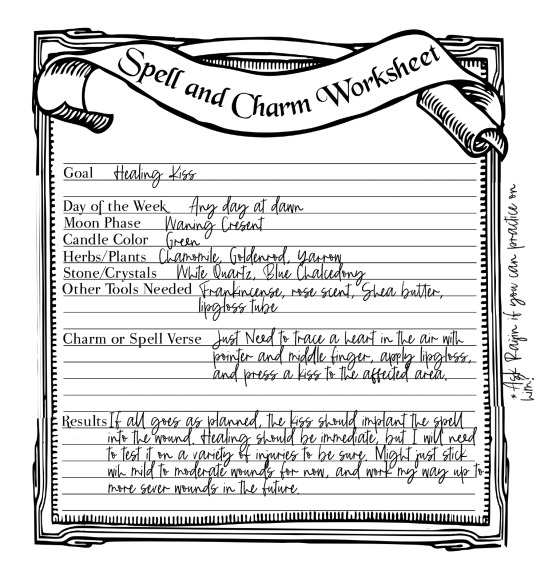 Spell and Charm Worksheet
Goal Healing Kiss
Day of the Week Any day at dawn
Moon Phase Waning Cresent
Candle Color Green
Herbs/Plants Chamomile, Goldenrod, Yarrow
Stone/Crystals White Quartz, Blue Chalcedony
Other Tools Needed Frankincense, rose scent, Shea butter,
lipgloss tube
Charm or Spell Verse Just Need to trace a heart in the air with
pointer and middle finger, apply lipgloss,
and press a kiss to the affected area.
Results If all goes as planned, the kiss should implant the spell
into the wound. Healing should be immediate, but I will need
to test it on a variety of injuries to be sure. Might just stick
wih mild to moderate wounds for now, and work my way up to
more sever wounds in the future.
*Ask Raijin if you can practice on
him!